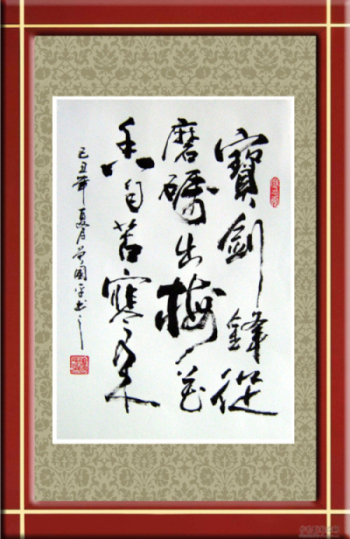 寶劍鋒從
磨礪出梅花
香自苦寒來
己丑年夏月